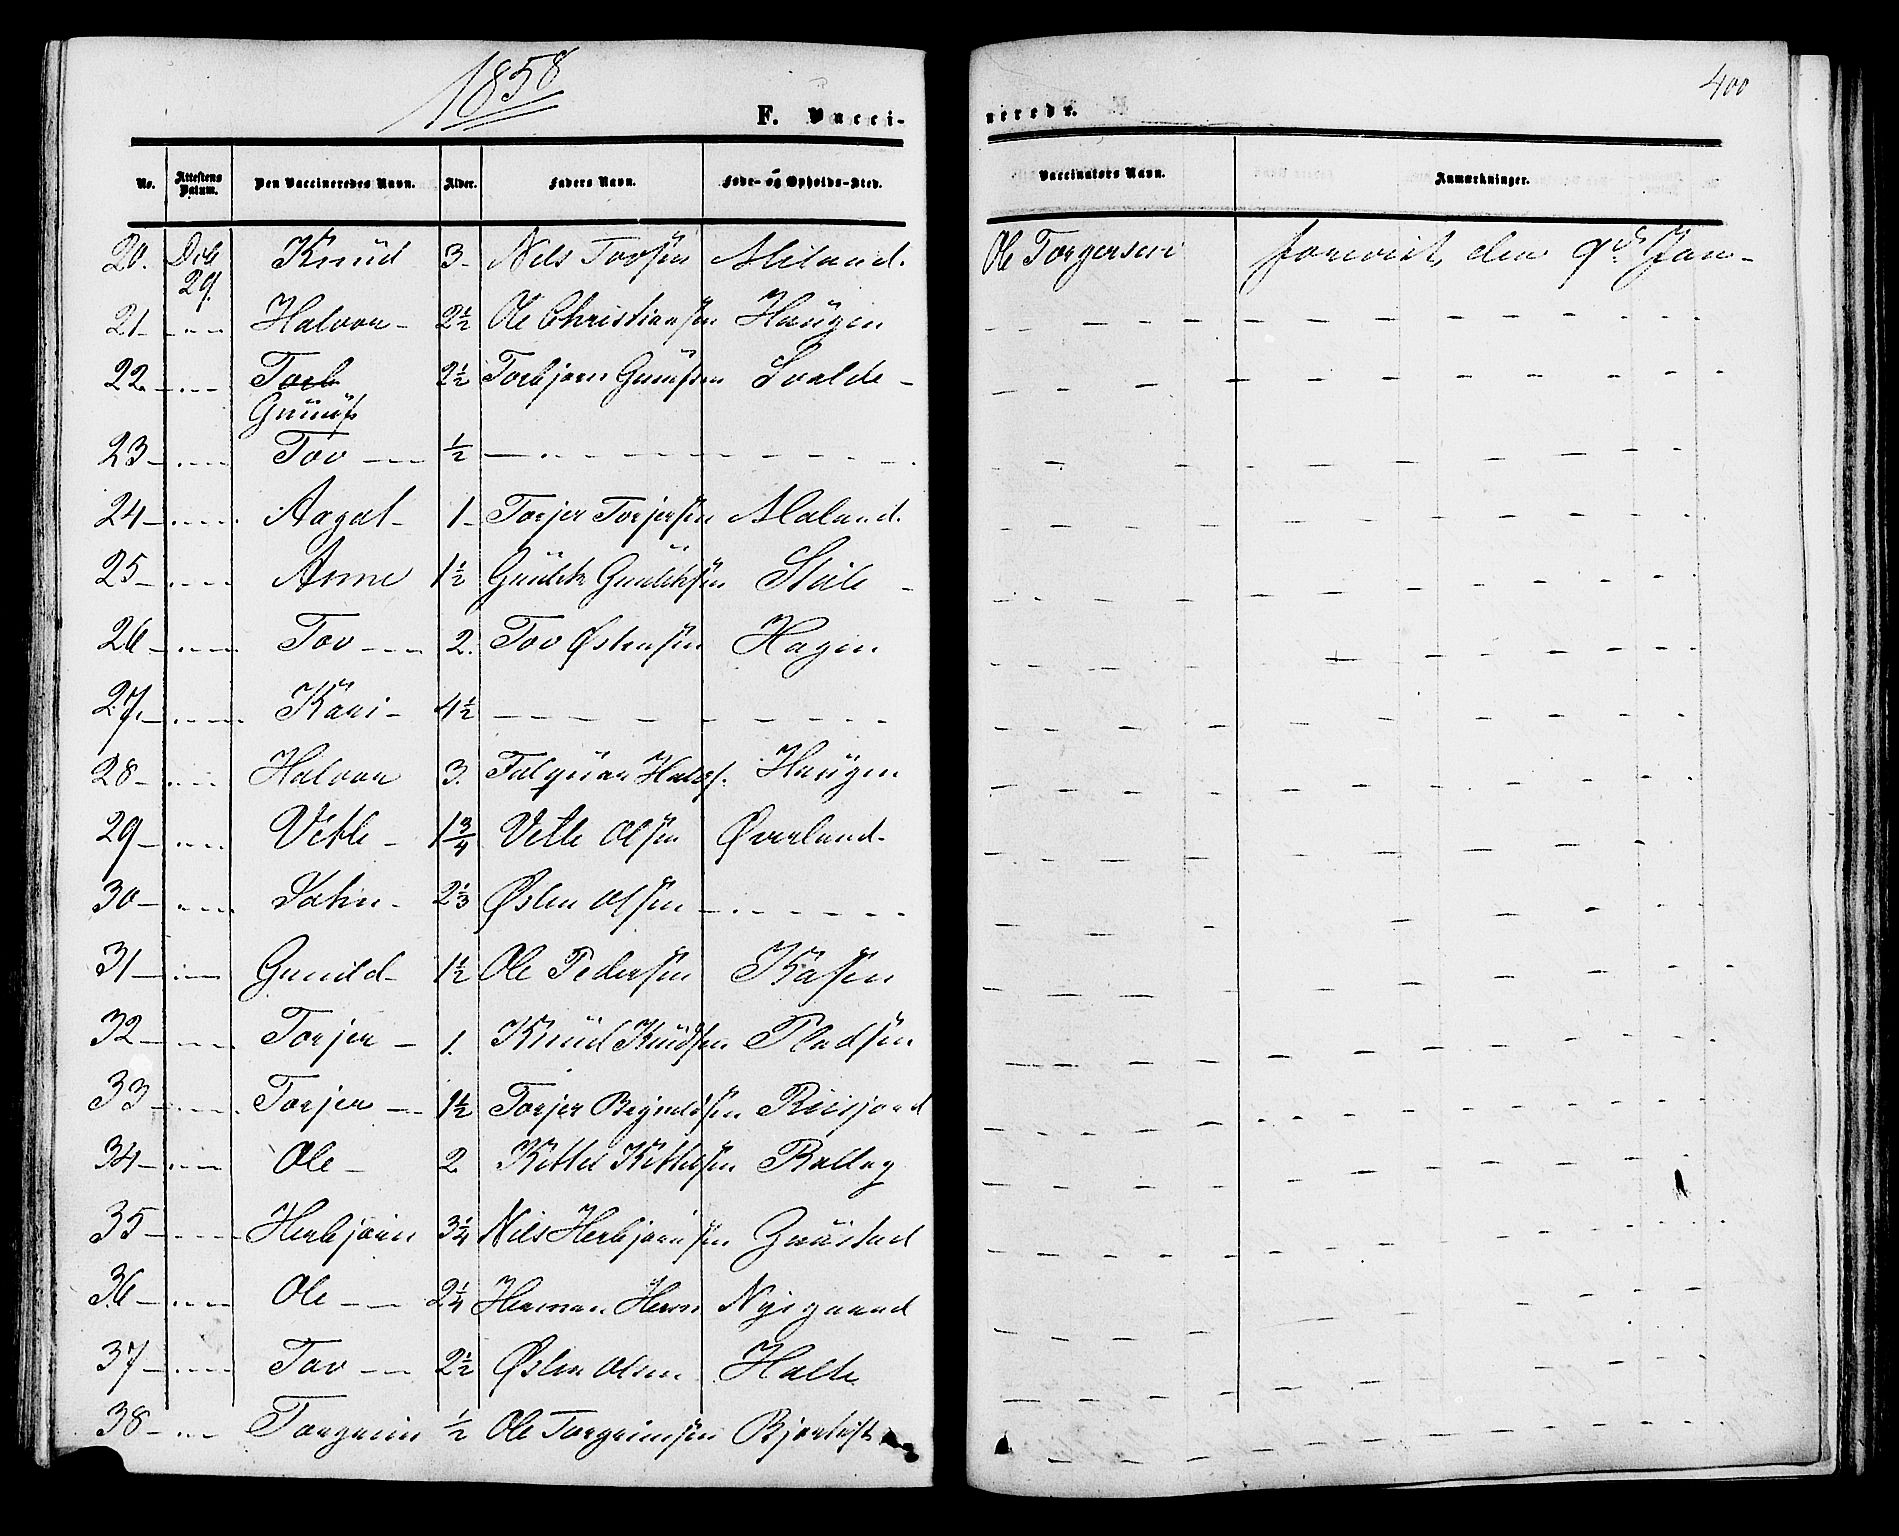 1858
400
F. Vacci-
nerede.
No. Attestens Datum. Den Vaccineredes Navn. Alder. Faders Navn. Føde- og Opholds-Sted. Vaccinators Navn. Anmærkninger.
20. Dcb 29. Knüd 3- Nils Torsen Miland. Ole Torgersen foreviist den 9de Jan-
21 - - - Halvor - 2½ Ole Christiansen Haügen - - -
22 - - - Torb Gunüf 2½ Torbjørn Gunüfsen Svalde - - - -
23 - - - Tov - - ½ - - - - - -
24 - - - Aagat - 1 - Torjer Torjersen Mæland. - - -
25 - - - Anne 1½ Günlek Günleksen Støile - - - -
26 - - - Tov - - 2. Tov Østensen Hagen - - -
27. - - - Kari - 4½ - - - - - -
28 - - - Halvor 3. Halvs. Haügen - - -
29 - - - Vetle - 1¾ Vetle Olsen Øverland. - - -
30 - - - - 2⅓ Østen Olsen - - - - - -
31 - - - Gunild - 1½ Ole Pedersen Kåsen - - -
32 - - - Torjer - 1. Knüd Knüdsen Pladsen - - -
33 - - - Torjer - 1½ Torjer Riisjord - - -
34 - - - Ole - 2 Kittel Kittelsen Rollag - - -
35 - - - Herbjørn 3¼ Nils Herbjørnsen Graüstad - - -
36 - - - Ole - - 2¼ Herman Herm Nysgaard - - -
37 - - - Tov - - 2½ Østen Olsen - - -
38 - - - Torgrim ½ Ole Torgrimsen - - -